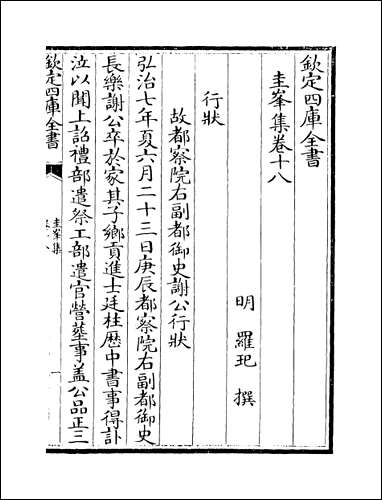 欽定四庫全書
圭峯集卷十八
明 羅玘 撰
行狀
故都察院右副都御史謝公行狀
弘治七年夏六月二十三日庚辰都察院右副都御史
長樂謝公卒於家其子鄉貢進士廷柱歴中書事得訃
泣以聞上詔禮部遣祭工部遣官營塟事盖公品正三
欽定四庫全書
圭峯集